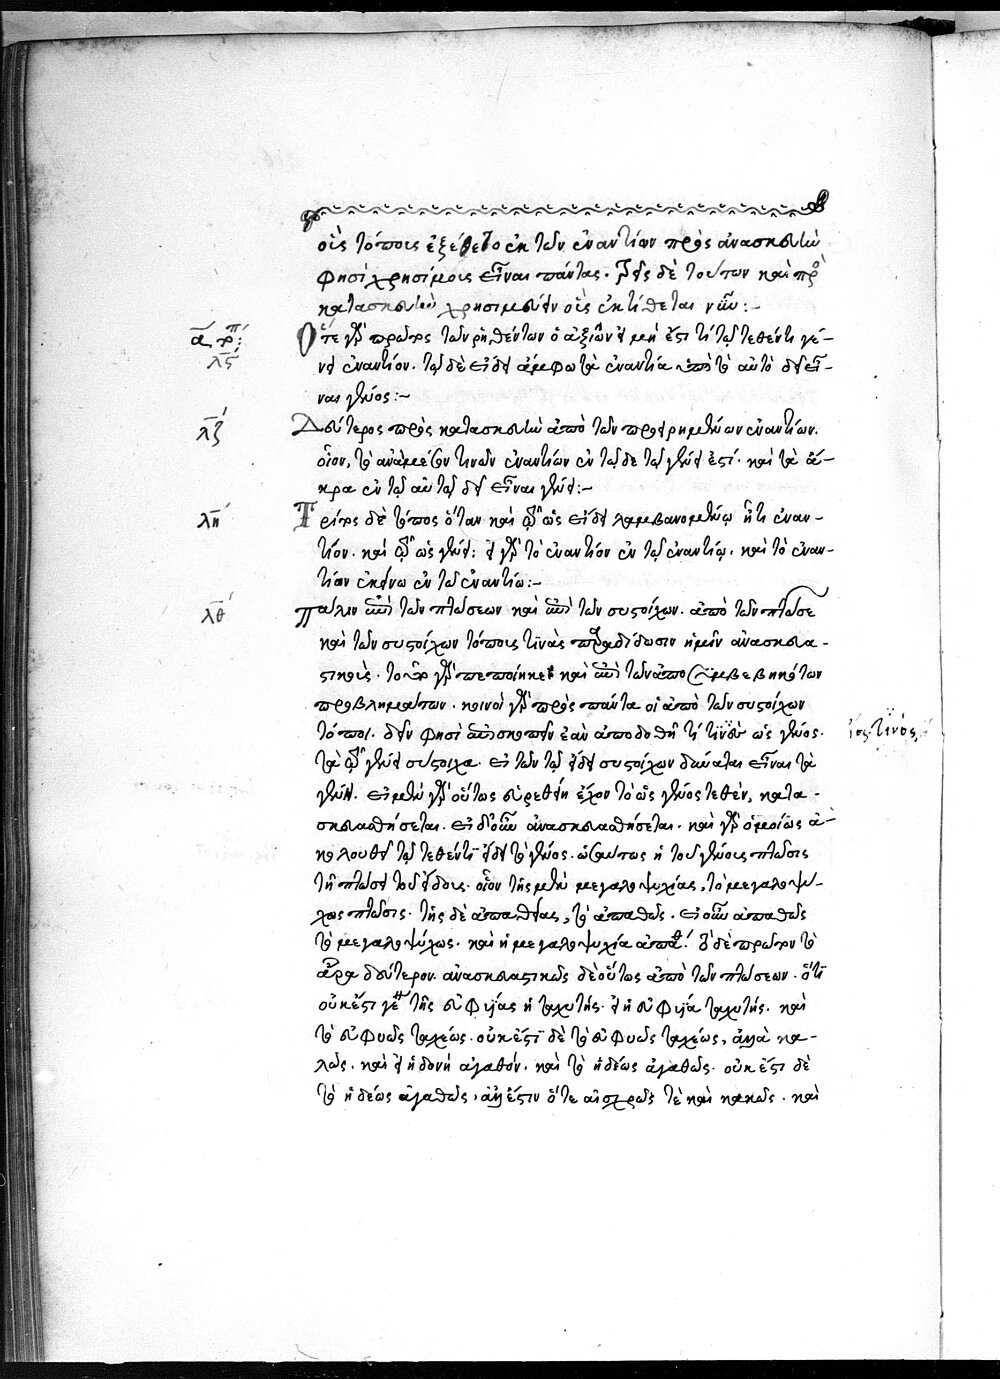 οἷς τόποις ἐξέθετο ἐκ τῶν ἐναντίων πρὸς ἀνασκευὴν
φησὶ χρησίμοις εἶναι πάντας. τῆς δὲ τούτων καὶ πρὸς
κατασκευὴν χρησιμεύειν οἷς ἐκτίθεται νῦν:–
α τρ π:
λϛ
Ὅτε γὰρ πρῶτος τῶν ῥηθέντων ὁ ἀξιῶν εἰ μή ἐστί τι τῷ τεθέντι γέ–
νει ἐναντίον. τῷ δὲ εἴδει ἄμφω τὰ ἐναντία ὑπὸ τὸ αὐτὸ δεῖ εἶ–
ναι γένος:–
λζ
Δεύτερος πρὸς κατασκευὴν ἀπὸ τῶν προειρημένων ἐναντίων.
οἷον, τὸ ἀνάμεσον τινῶν ἐναντίων ἐν τῷδε τῷ γένει ἐστί. καὶ τὰ ἄ–
κρα ἐν τῷ αὐτῷ δεῖ εἶναι γένει:–
λη
Τρίτος δὲ τόπος ὅταν καὶ τῷ ὡς εἴδει λαμβανομένῳ ᾖ τι ἐναν–
τίον. καὶ τῷ ὡς γένει: εἰ γὰρ τὸ ἐναντίον ἐν τῷ ἐναντίῳ. καὶ τὸ ἐναν–
τίον ἐκείνω ἐν τῶ ἐναντίω:–
λθ
Πάλιν ἐπὶ τῶν πτώσεων καὶ ἐπὶ τῶν συστοίχων. ἀπὸ τῶν πτώσε
καὶ τῶν συστοίχων τόποις τινὰς παραδίδωσιν ἡμῖν ἀνασκευα–
στικοὺς. τοῦτο γὰρ πεποίηκε καὶ ἐπὶ τῶν ἀπο συμβεβηκότων
προβλημάτων. κοινοὶ γὰρ πρὸς πάντα οἱ ἀπὸ τῶν συστοίχων
τόποι. δεῖν φησὶ σκοπεῖν ἐὰν ἀποδοθῆ τί τινὸς ὡς γένος.
τὰ τῷ γένει σύστοιχα. εἰ τῶν τῷ εἴδει συστοίχων δύναται εἶναι τὰ
γένη. εἰ μὲν γὰρ οὕτως εὑρεθείη ἔχον τὸ ὡς γένος τεθὲν, κατα–
σκευασθήσεται. εἰ δ' οὖν ἀνασκευασθήσεται. καὶ γὰρ ὁμοίως ἀ–
κολουθεῖ τῷ τεθέντι εἴδει τὸ γένος. ὡσαύτως ἡ τοῦ γένους πτῶσις
τῆ πτώσει τοῦ εἴδους. οἷον τῆς μὲν μεγαλοψυχίας, τὸ μεγαλοψύ–
χως πτῶσις. τῆς δὲ ἀπαθείας, τὸ ἀπαθῶς. εἰ οὖν ἀπαθῶς
τὸ μεγαλοψύχως. καὶ ἡ μεγαλοψυχία ἀπαθ. τὸ δὲ πρῶτον τὸ
ἄρα δεύτερον. ἀνασκευαστικῶς δὲ οὕτως ἀπὸ τῶν πτώσεων. ὅτι
οὐκ ἔστι γε τῆς εὐφυΐας ἡ ταχυτής. εἰ ἡ εὐφυΐα ταχυτής. καὶ
τὸ εὐφυῶς ταχέως. οὐκ ἔστι δὲ τὸ εὐφυῶς ταχέως, ἀλλὰ κα–
λῶς. καὶ εἰ ἡδονὴ ἀγαθόν. καὶ τὸ ἡδέως ἀγαθῶς. οὐκ ἔστι δὲ
τὸ ἡδέως ἀγαθῶς, ἀλλ' ἔστιν ὅτε αἰσχρῶς τὲ καὶ κακῶς. καὶ
τινὸς